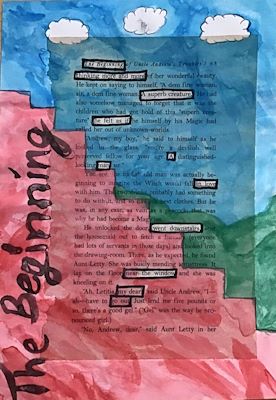 The Beginning
The Beginning of Uncle Andrew's Troubles 93
thinking more and more of her wonderful beauty.
He kept on saying to himself, "A dem fine woman,
sir, a dem fine woman. A superb creature." He had
also somehow managed to forget that it was the
children who had got hold of this "superb crea-
ture": he felt as if he himself by his Magic had
called her out of unknown worlds.
"Andrew, my boy," he said to himself as he
looked in the glass, "you're a devilish well
preserved fellow for your age. A distinguished-
looking
You see, the old man was actually be-
ginning to imagine the Witch would fall in love
with him. The two drinks probably had something
to do with it, and so had his best clothes. But he
was, in any case, as vain as a peacock; that was
why he had become a Magician.
He unlocked the door, went downstairs,
the housemaid out to fetch a hansom (everyone
had lots of servants in those days) and looked into
the drawing-room. There, as he expected, he found
Aunt Letty. She was busily mending a mattress. It
lay on the floor near the window and she was
kneeling on it.
"Ah, Letitia my dear," said Uncle Andrew, "I—
ah—have to go out. Just lend me five pounds or
so, there's a good gel." ("Gel" was the way he pro-
nounced girl.)
"No, Andrew, dear," said Aunt Letty in her